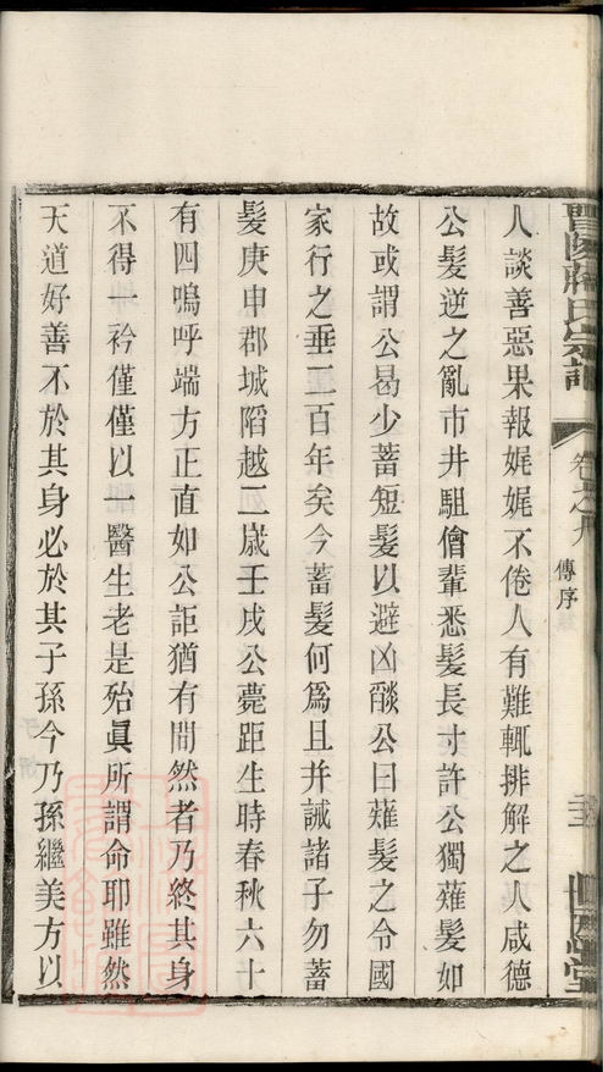 人談善惡果報娓娓不倦人有難輒排解之人咸德
公髮逆之亂市井駔儈輩悉髮長寸許公獨薙髮如
故或謂公曷少蓄短髮以避凶燄公曰薙髮之令國
家行之垂二百年矣今蓄髮何爲且并誡諸子勿蓄
髮庚申郡城陷越二歲壬戌公薨距生時春秋六十
有四嗚呼端方正直如公詎猶有間然者乃終其身
不得一衿僅僅以一醫生老是殆眞所謂命耶雖然
天道好善不於其身必於其子孫今乃孫繼美方以
卷之九
傳序